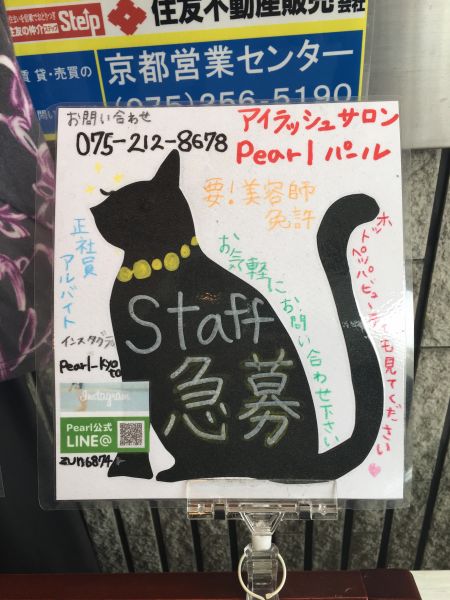 住まいを信頼でおとりつぎ
住友の仲介 ステップ Step
住友不動産販売 株式会社
賃貸・売買の
京都営業センター
(075)256-5190
お問い合わせ
075-212-8678
アイラッシュサロン
Pearl パール
要!美容師
免許
正社員
アルバイト
お気軽にお問い合わせ下さい
ホットペッパービューティーも見てください
Staff
急募
インスタグラム
Pearl-kyo
to
Instagram
Pearl公式
LINE@